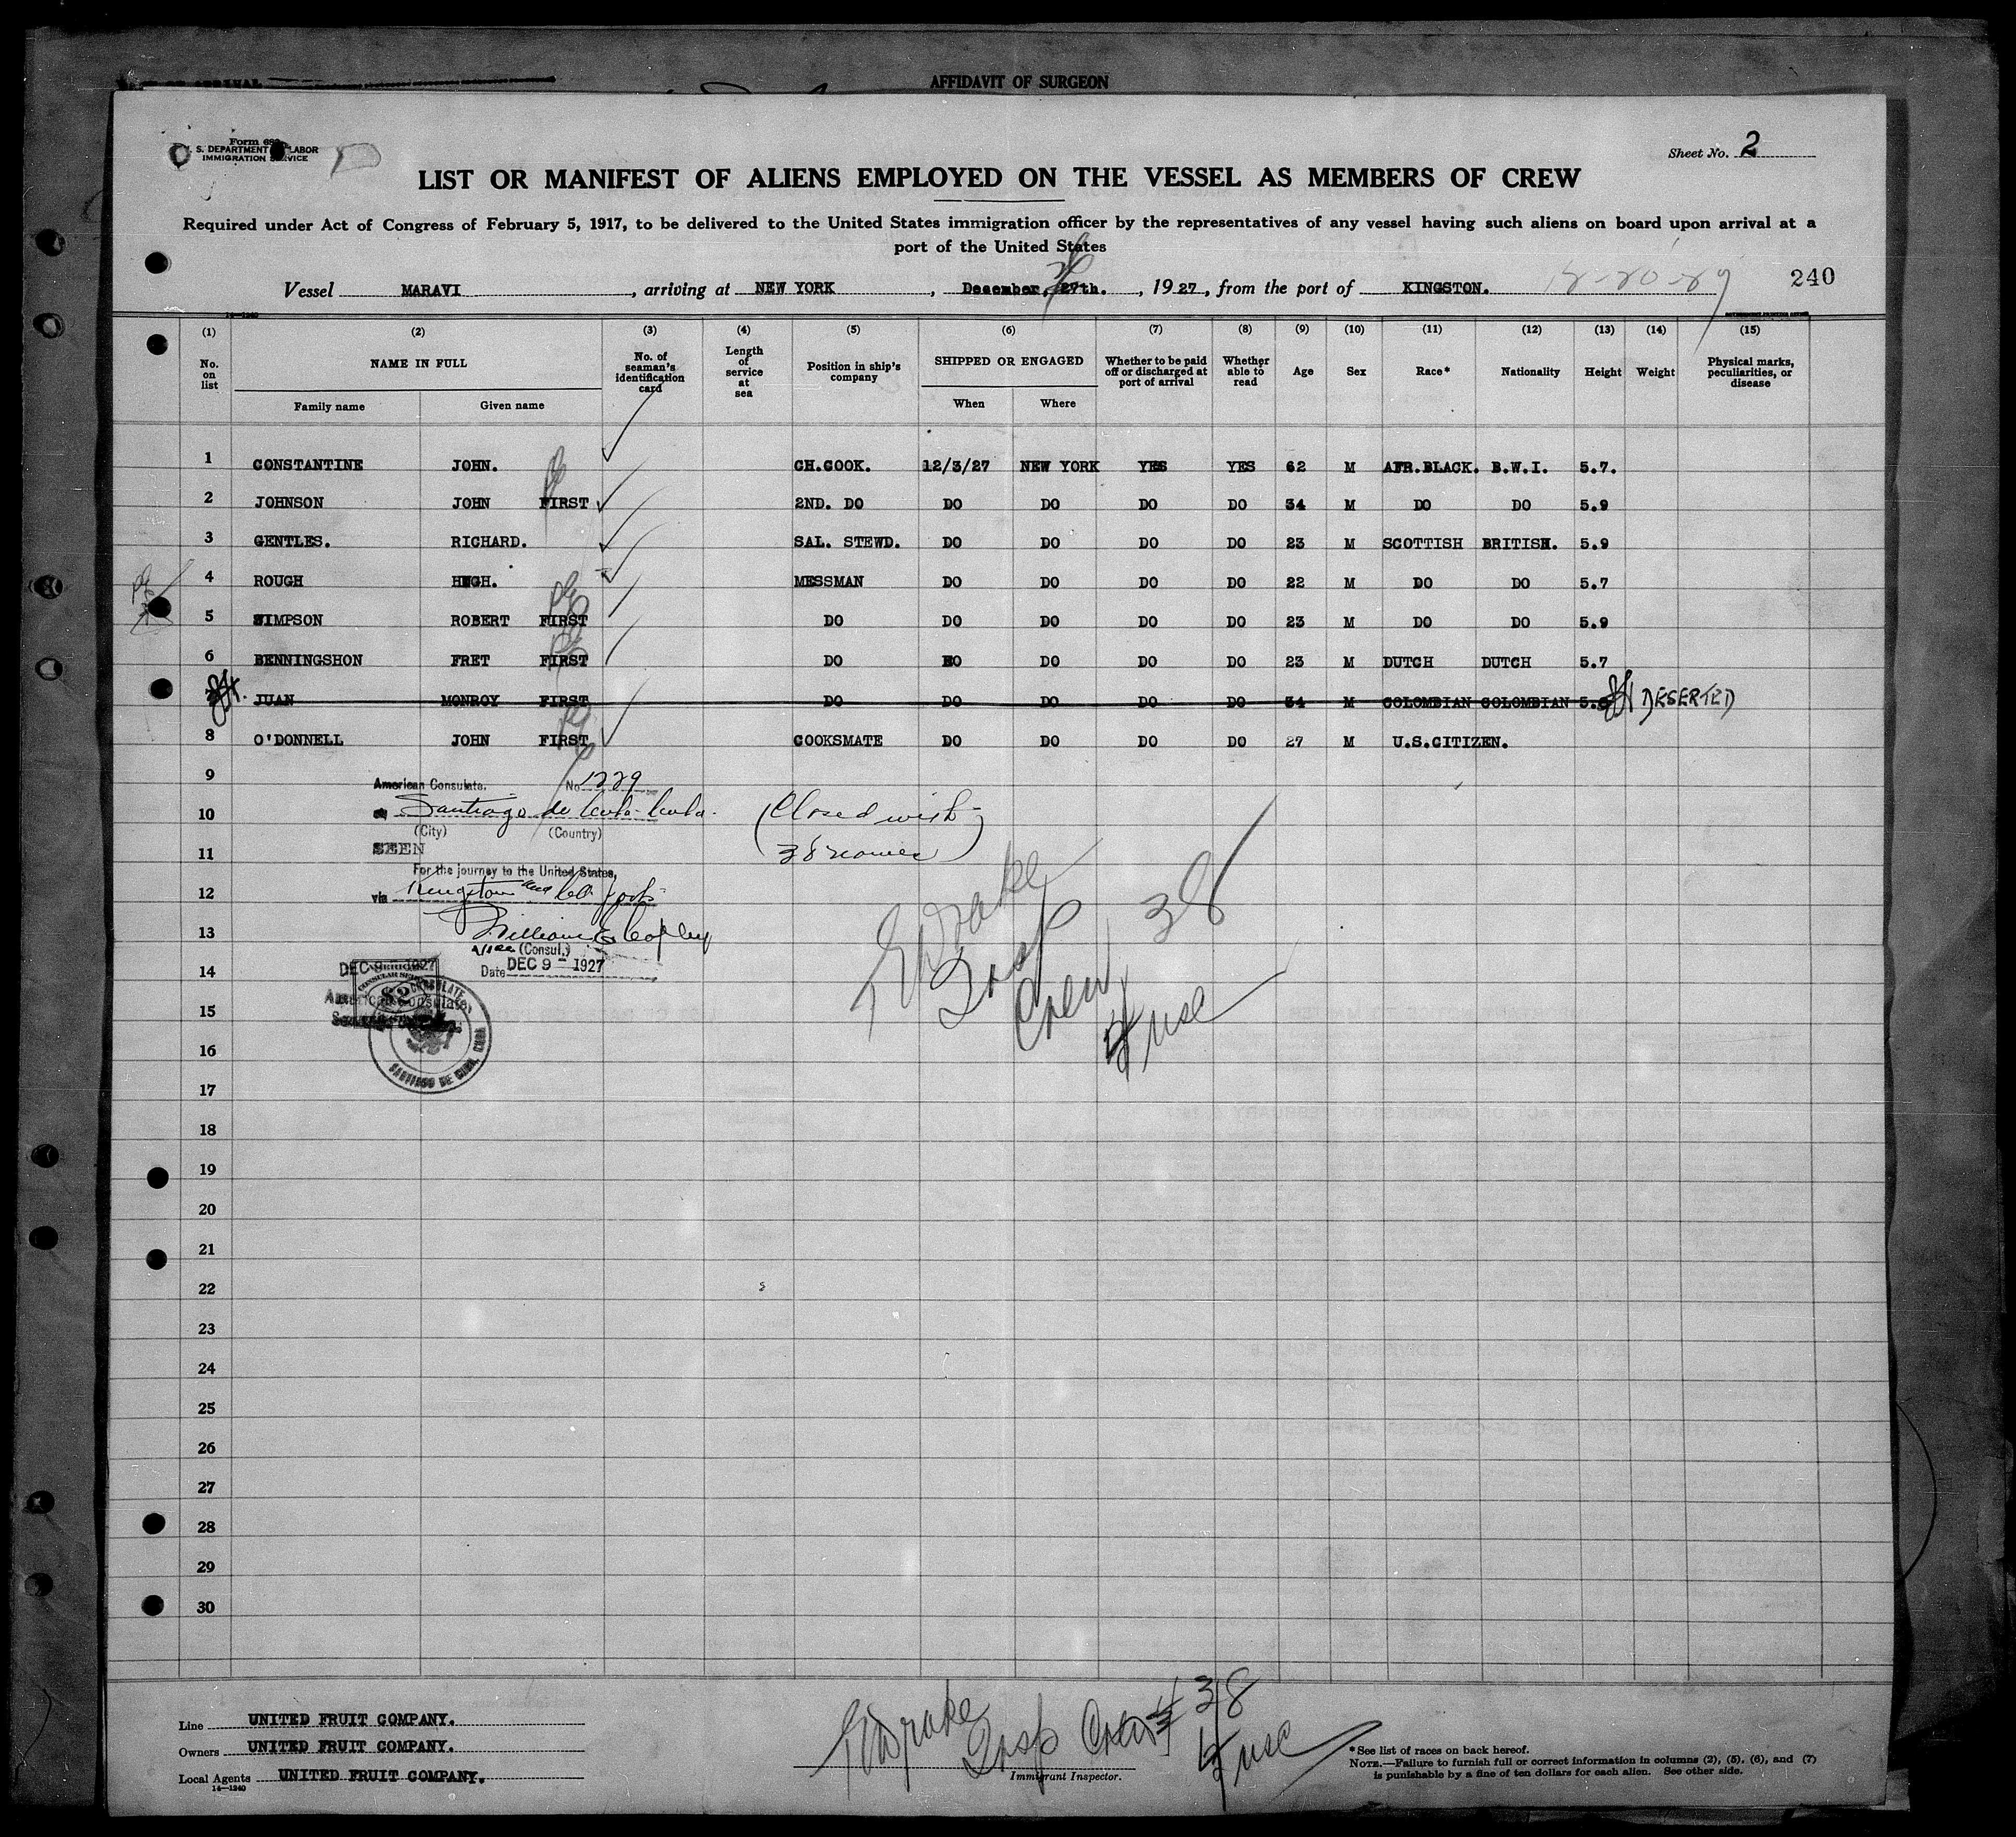 AFFIDAVIT OF SURGEON
Form 680
U. S. DEPARTMENT OF LABOR
IMMIGRATION SERVICE
Sheet No. 2
LIST OR MANIFEST OF ALIENS EMPLOYED ON THE VESSEL AS MEMBERS OF CREW
Required under Act of Congress of February 5, 1917, to be delivered to the United States immigration officer by the representatives of any vessel having such aliens on board upon arrival at a
port of the United States
Vessel MARAVI, arriving at NEW YORK, December, 27th., 1927, from the port of KINGSTON. 240
14—1240
(1) (2) (3) (4) (5) (6) (7) (8) (9) (10) (11) (12) (13) (14) (15)
No. on list NAME IN FULL No. of seaman's identification card Length of service at sea Position in ship's company SHIPPED OR ENGAGED Whether to be paid off or discharged at port of arrival Whether able to read Age Sex Race* Nationality Height Weight Physical marks, peculiarities, or disease
Family name Given name When Where
1 CONSTANTINE JOHN. CH.COOK. 12/3/27 NEW YORK YES YES 62 M AFR.BLACK. B.W.I. 5.7.
2 JOHNSON JOHN FIRST 2ND. DO DO DO DO DO 34 M DO DO 5.9
3 GENTLES. RICHARD. SAL. STEWD. DO DO DO DO 23 M SCOTTISH BRITISH. 5.9
4 ROUGH HUGH. MESSMAN DO DO DO DO 22 M DO DO 5.7
5 SIMPSON ROBERT FIRST DO DO DO DO DO 23 M DO DO 5.9
6 BENNINGSHON FRET FIRST DO DO DO DO DO 23 M DUTCH DUTCH 5.7
7 JUAN MONROY FIRST DO DO DO DO DO 34 M COLOMBIAN COLOMBIAN DESERTED
8 O'DONNELL JOHN FIRST COOKSMATE DO DO DO DO 27 M U.S.CITIZEN.
9
American Consulate. No. 1229
10
Santiago de Cuba Cuba.
(City) (Country)
(Closed with
38 names)
11
SEEN
For the journey to the United States,
12
via Kingston and
13
William E. Copley
Vice (Consul.)
Date DEC 9 - 1927
DEC 9 - 1927
American Consulate
14
CONSULATE
SANTIAGO DE CUBA, CUBA
$2
Drake
Insp
Crew 38
4 usc
15
16
17
18
19
20
21
22
23
24
25
26
27
28
29
30
Line UNITED FRUIT COMPANY.
Owners UNITED FRUIT COMPANY.
Local Agents UNITED FRUIT COMPANY.
14—1240
Drake Insp Crew 38
4 usc
Immigrant Inspector.
*See list of races on back hereof.
NOTE.—Failure to furnish full or correct information in columns (2), (5), (6), and (7)
is punishable by a fine of ten dollars for each alien. See other side.